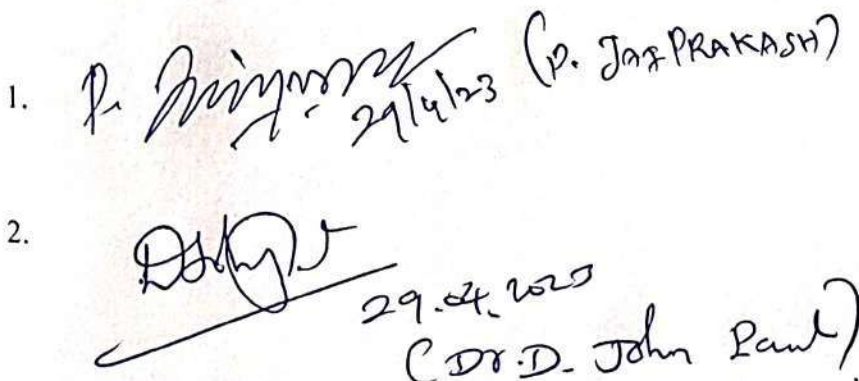 1. P. 29/4/23 (P. JAYPRAKASH)
2.
29.04.2023
(Dr. D. John Paul)